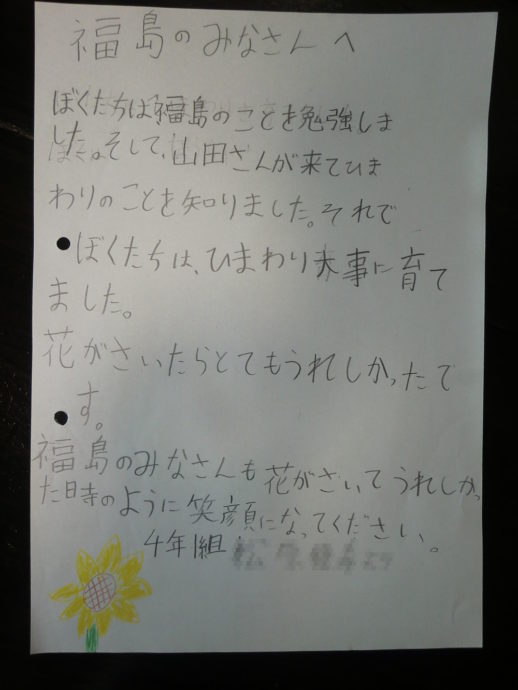 福島のみなさんへ
ぼくたちは福島のことを勉強しま
した。そして、山田さんが来てひま
わりのことを知りました。それで
ぼくたちは、ひまわり大事に育て
ました。
花がさいたらとてもうれしかったで
す。
福島のみなさんも花がさいてうれしかっ
た時のように笑顔になってください。
4年1組